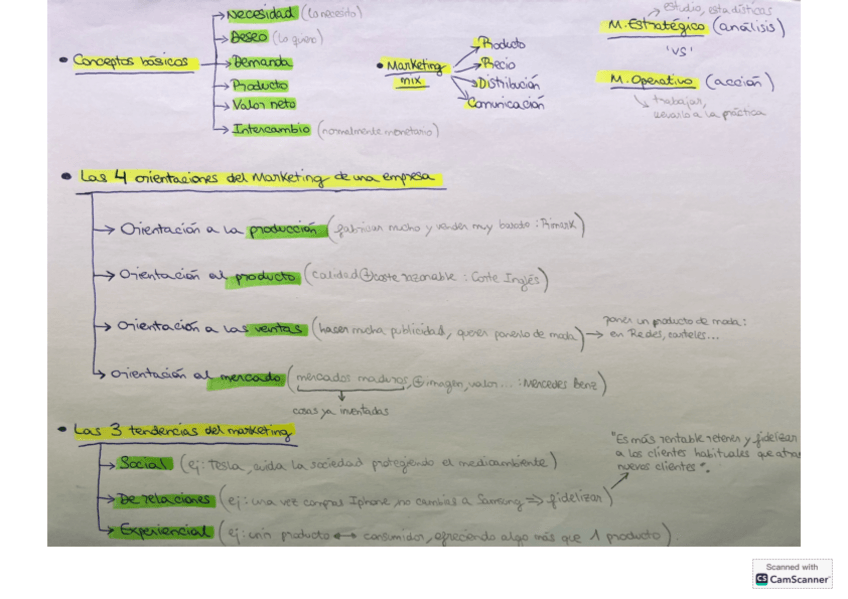 • Conceptos básicos
→ Necesidad (lo necesito)
→ Deseo (lo quiero)
→ Demanda
→ Producto
→ Valor neto
→ Intercambio (normalmente monetario)
• Marketing mix
→ Producto
→ Precio
→ Distribución
→ Comunicación
→ estudio, estadísticas
M. Estratégico (análisis)
'VS'
M. Operativo (acción)
→ trabajar,
llevarlo a la práctica
• Las 4 orientaciones del Marketing de una empresa
→ Orientación a la producción (fabricar mucho y vender muy barato: Primark)
→ Orientación al producto (calidad ⊕ coste razonable: Corte Inglés)
→ Orientación a las ventas (hacen mucha publicidad, quieren ponerlo de moda) → poner un producto de moda:
en Redes, carteles...
→ Orientación al mercado (mercados maduros, ⊕ imagen, valor...: Mercedes Benz)
cosas ya inventadas
• Las 3 tendencias del marketing
→ Social (ej: Tesla, cuida la sociedad protegiendo el medioambiente)
→ De relaciones (ej: una vez compras Iphone, no cambias a Samsung ⇒ fidelizar)
"Es más rentable retener y fidelizar
a los clientes habituales que
nuevos clientes".
→ Experiencial (ej: unir producto ↔ consumidor, ofreciendo algo más que 1 producto).
Scanned with
CS CamScanner